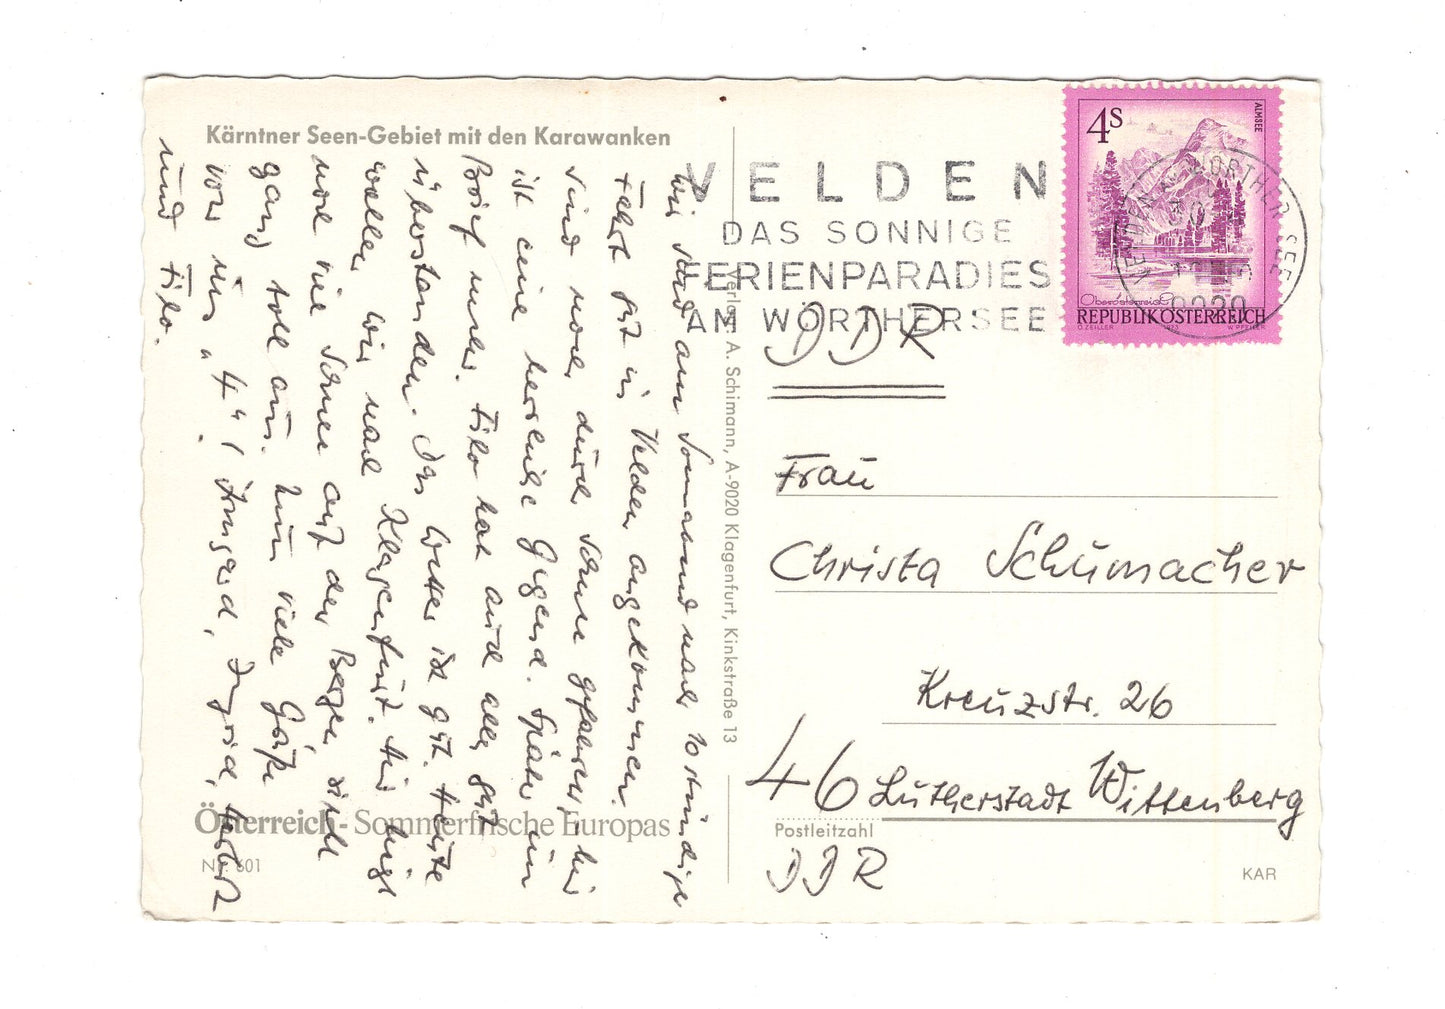 Kärntner Seen-Gebiet mit den Karawanken
Wir sind am Sonnabend nach 10 stündiger
Fahrt gut in Velden angekommen.
Sind noch durch Schnee gefahren, hier
ist eine herrliche Gegend. Später im
Brief mehr. Filo hat auch alles gut
überstanden. Das Wetter ist gut. Heute
wollen wir nach Klagenfurt. Hier liegt
noch viel Schnee auf den Bergen sieht
ganz toll aus. Nun viele Grüße
von uns "4" (Irmgard, Ingrid,
und Filo.
Österreich - Sommerfrische Europas
Nr. 601
Verlag A. Schimann, A-9020 Klagenfurt, Kinkstraße 13
VELDEN
DAS SONNIGE
FERIENPARADIES
AM WÖRTHERSEE
4S
ALMSEE
Oberösterreich
REPUBLIK ÖSTERREICH
O. ZEILLER 1973 W. PFEILER
VELDEN AM WÖRTHER SEE
9220
DDR
Frau
Christa Schumacher
Kreuzstr. 26
46 Lutherstadt Wittenberg
Postleitzahl
DDR
KAR